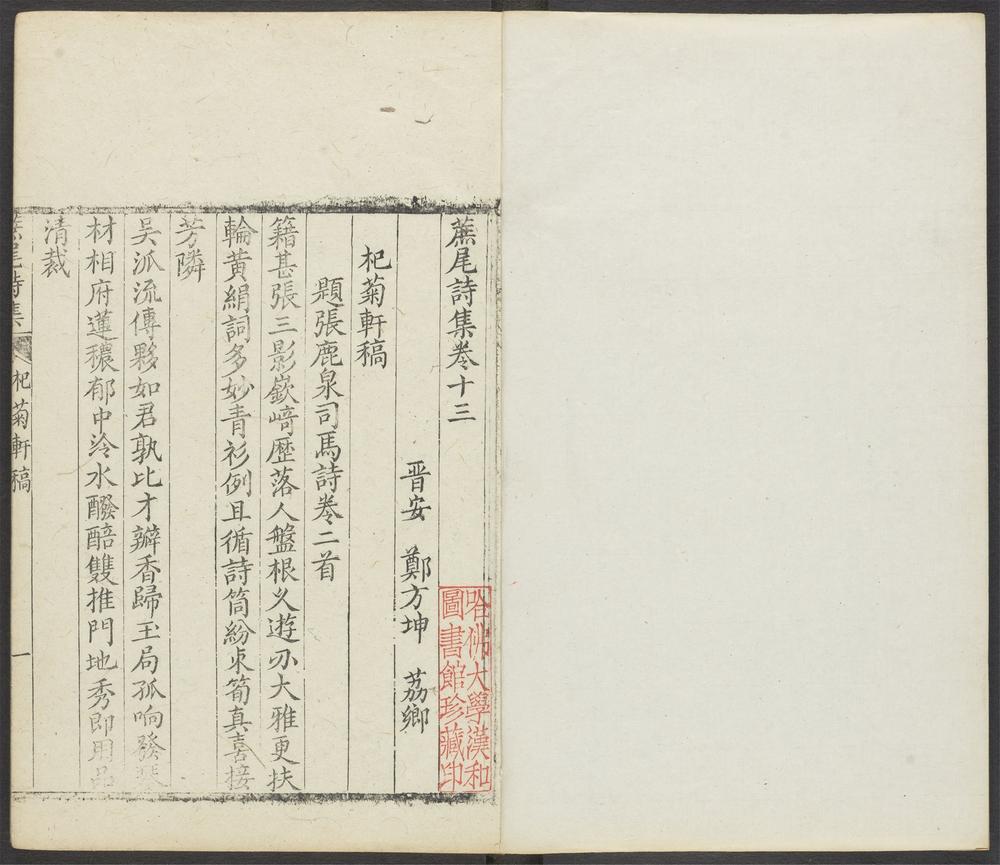 蔗尾詩集卷十三
晉安 鄭方坤 荔鄉
哈佛大學漢和
圖書館珍藏印
杞菊軒稿
題張鹿泉司馬詩卷二首
籍甚張三影嶔﨑歷落人盤根久遊刃大雅更扶
輪黃絹詞多妙青衫例且循詩筒紛束筍真喜接
芳隣
吳派流傳夥如君孰比才辦香歸玉局孤响發琴
材相府蓮穠郁中泠水醱醅雙推門地秀即用品
清裁
蔗尾詩集 杞菊軒稿 一